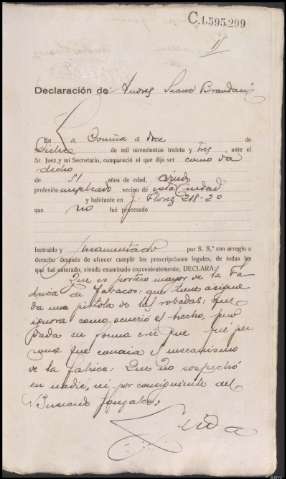 C.1.595.299
Declaración de Andres Seane Brandaui
En La Coruña a doce de
Julio de mil novecientos treinta y tres, ante el
Sr. Juez y mi Secretario, compareció el que dijo ser como va
dicho
de 51 años de edad,
profesión empleado vecino de esta Ciudad
y habitante en J. Florez 218-2º
que no fué procesado
Instruido y juramentado por S. Sª con arreglo a
derecho después de ofrecer cumplir las prescripciones legales, de todas las
que fué enterado, siendo examinado convenientemente, DECLARA:
Que es portero mayor de la Fá-
brica de Tabacos: que tiene asigna-
da una pistola de las robadas: que
ignora como ocurrió el hecho, pu-
dada en forma cree que fué per-
sona que conocía el mecanismo
de la fábrica. Que no sospechó
en nadie, ni por consiguiente del
Gonzalez: